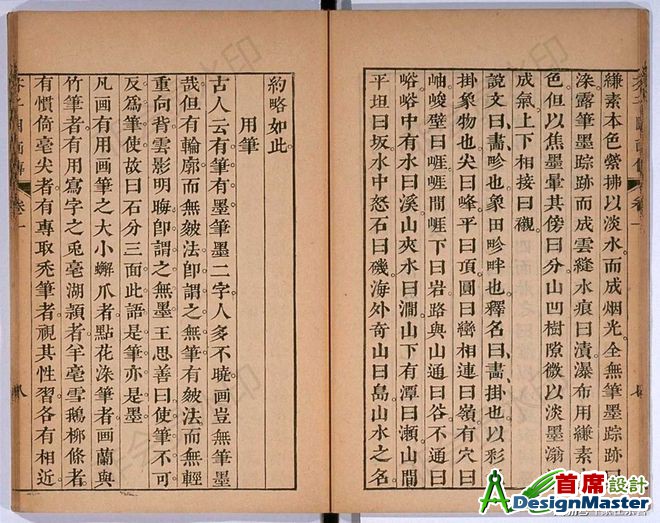 縑素本色縈拂以淡水而成烟光全無筆墨踪跡曰
染露筆墨踪跡而成雲縫水痕曰漬瀑布用縑素本
色但以焦墨暈其傍曰分山凹樹隙微以淡墨滃
成氣上下相接曰襯
說文曰畫畛也象田畛畔也釋名曰畫掛也以彩色
掛象物也尖曰峰平曰頂圓曰巒相連曰嶺有穴曰
岫峻壁曰崕崕間崕下曰岩路與山通曰谷不通曰
峪峪中有水曰溪山夾水曰澗山下有潭曰瀨山間
平坦曰坂水中怒石曰磯海外奇山曰島山水之名
約略如此
用筆
古人云有筆有墨筆墨二字人多不曉画豈無筆墨
哉但有輪廓而無皴法卽謂之無筆有皴法而無輕
重向背雲影明晦卽謂之無墨王思善曰使筆不可
反爲筆使故曰石分三面此語是筆亦是墨
凡画有用画筆之大小蠏爪者點花染筆者画蘭與
竹筆者有用寫字之兎毫湖頴者羊毫雪鵝柳條者
有慣倚毫尖者有專取禿筆者視其性習各有相近
卷一
首席設計
DesignMaster